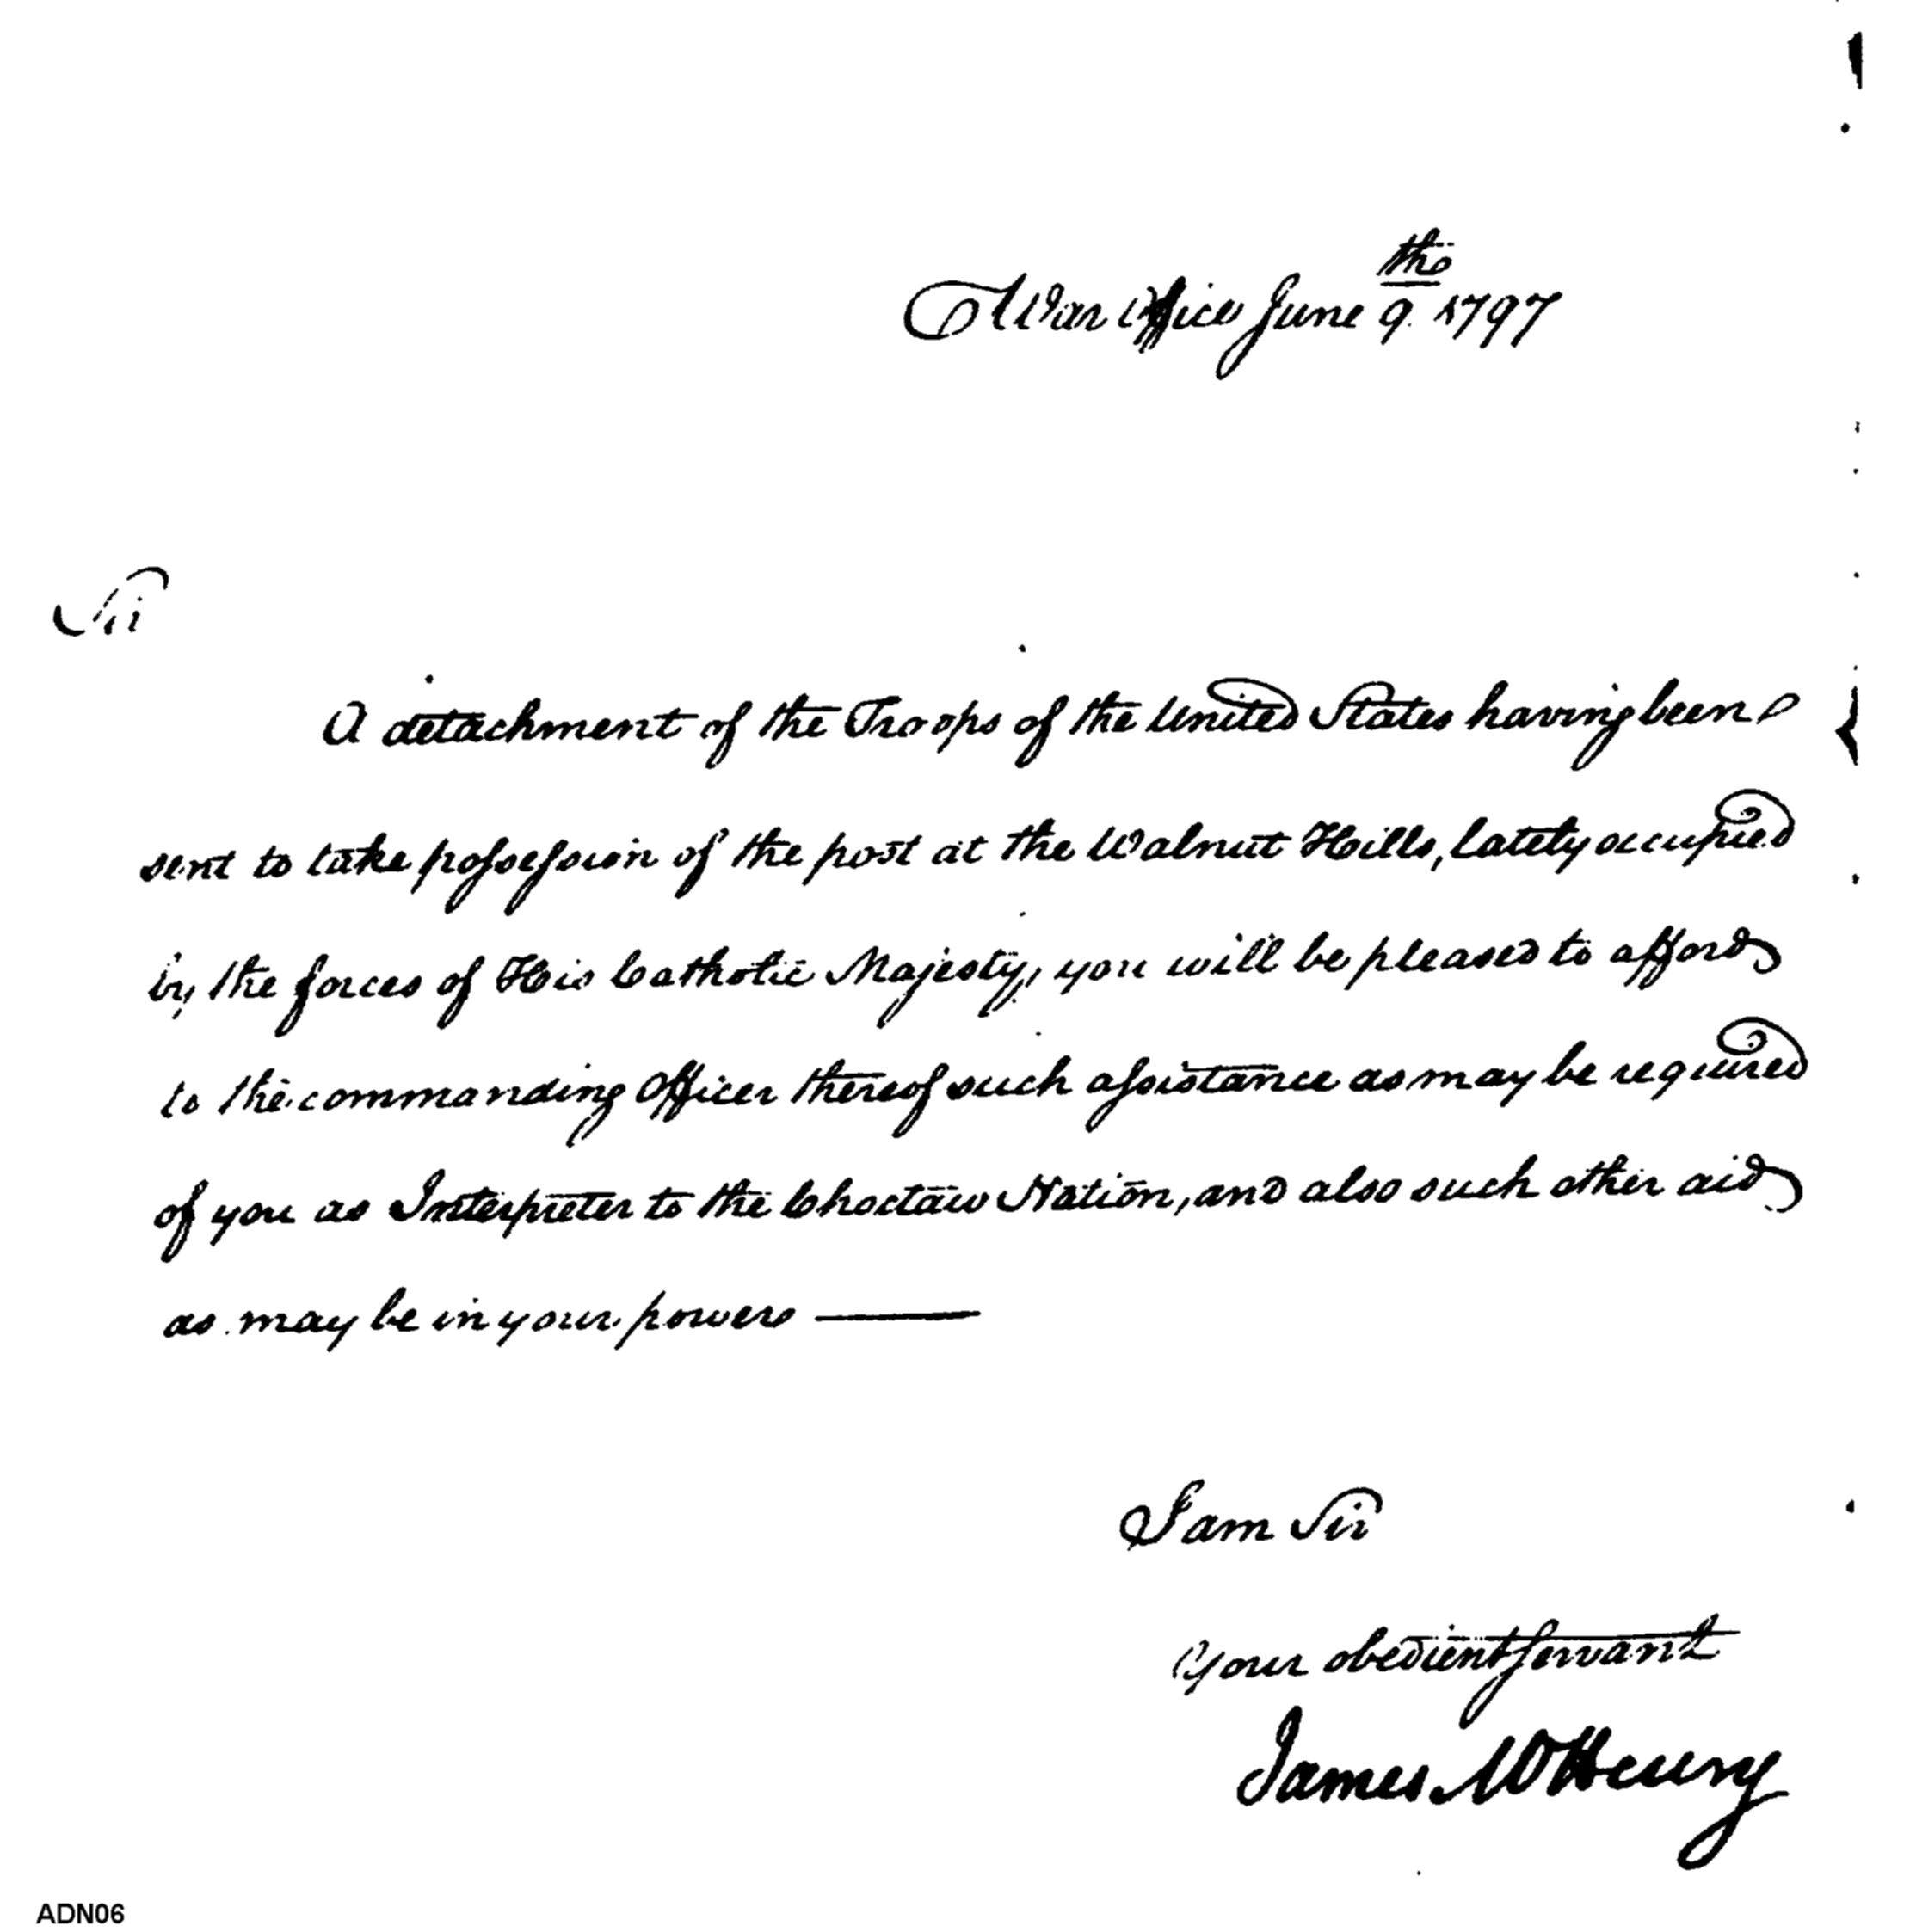 War Office June 9th 1797
Sir
A detachment of the Troops of the United States having been
sent to take possession of the post at the Walnut Hills, lately occupied
by the forces of His Catholic Majesty, you will be pleased to afford
to the commanding Officer thereof such assistance as may be required
of you as Interpreter to the Choctaw Nation, and also such other aid
as may be in your power —
I am Sir
Your obedient servant
James McHenry
ADN06